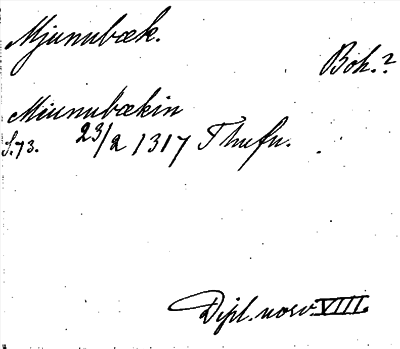 Mjunubæk.
Boh.?
Miunubækin
S.73. 23/2 1317 Thufn.
Dipl. norv. VIII.